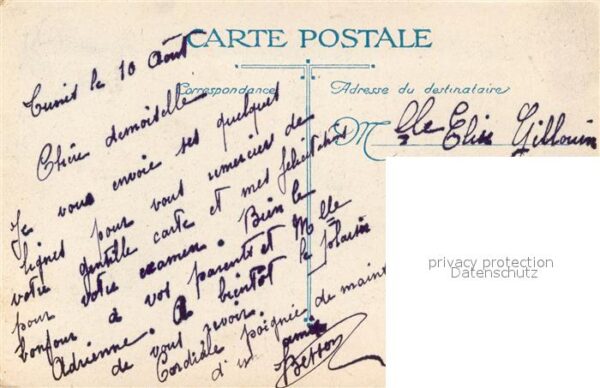 CARTE POSTALE
Correspondance
Adresse du destinataire
Tunis le 10 Août
Chère demoiselle
Je vous envoie ses quelques
lignes pour vous remercier de
votre gentille carte et mes félicitations
pour votre examen. Bien le
bonjour à vos parents et Mlle
Adrienne. A bientôt le plaisir
de vous revoir
Cordiale poignée de main
d'un ami
Besson
Mlle Elise Gillouin
privacy protection
Datenschutz